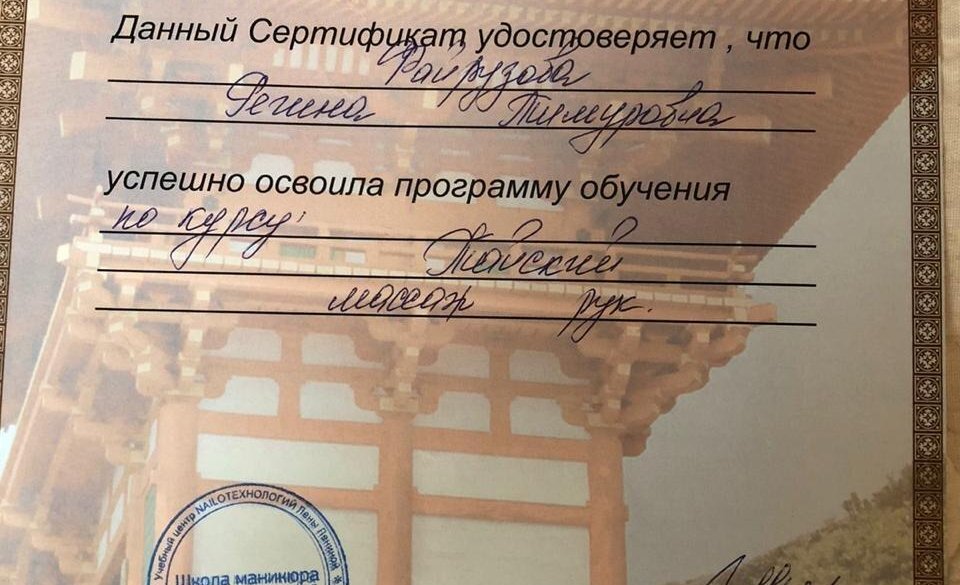 Данный Сертификат удостоверяет, что
Файрузова
Регина Тимуровна
успешно освоила программу обучения
по курсу:
Тайский
массаж рук.
Учебный центр NAILОТЕХНОЛОГИЙ Лены Лениной
Школа маникюра